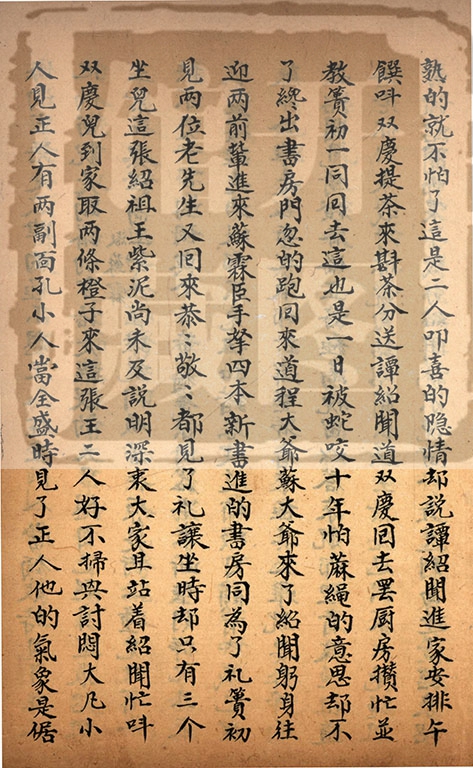 熟的就不怕了這是二人叩喜的隐情却說譚紹聞進家安排午
饌呌双慶提茶來斟茶分送譚紹聞道双慶回去罢厨房攒忙並
教簣初一同回去這也是一日被蛇咬十年怕蔴繩的意思却不
了纔出書房門忽的跑回來道程大爺蘇大爺來了紹聞躬身往
迎两前輩進來蘇霖臣手拏四本新書進的書房同為了礼簣初
見两位老先生又回來恭:敬:都見了礼讓坐時却只有三个
坐兒這張紹祖王紫泥尚未及説明深衷大家且站着紹聞忙呌
双慶兒到家取两條橙子來這張王二人好不掃興討悶大凡小
人見正人有两副面孔小人當全盛時見了正人他的氣象是倨